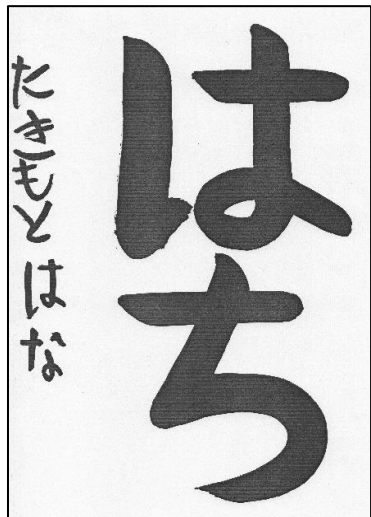 はち
たきもと はな